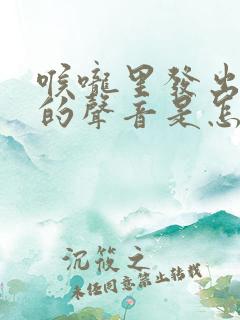 喉嚨里發出
的聲音是怎
沉筱之
未经同意禁止转载